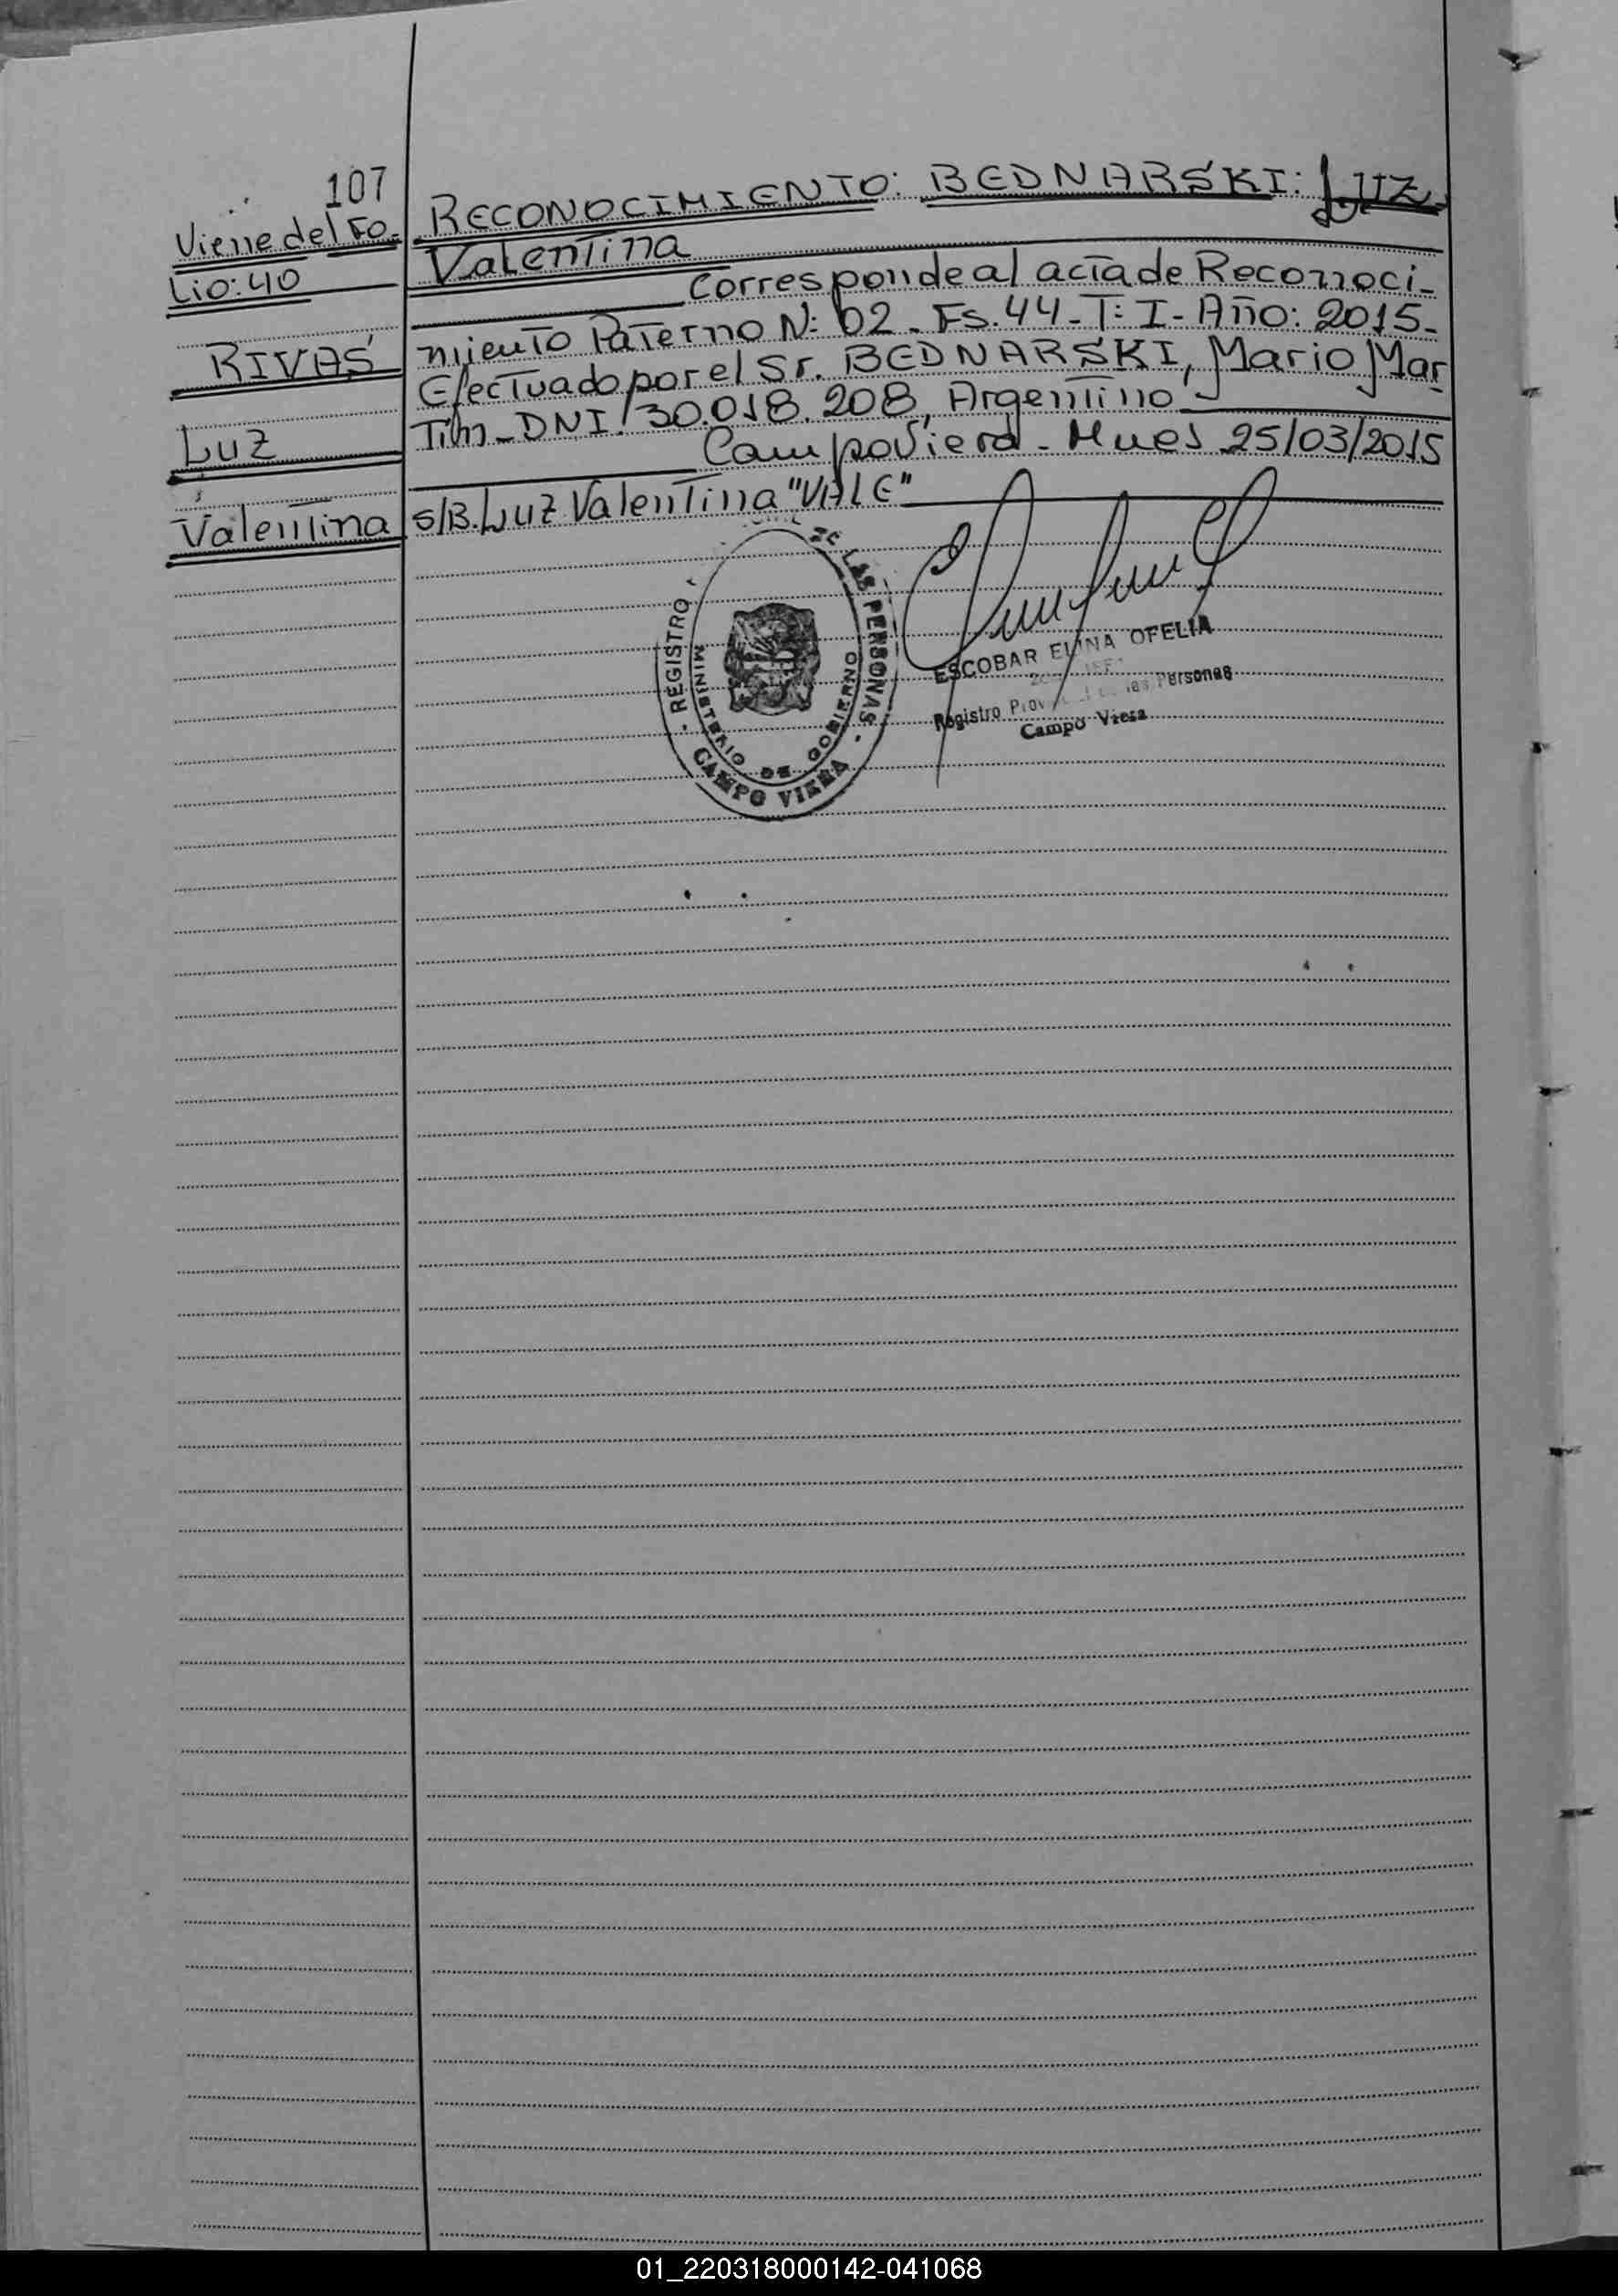 107
Viene del Fo-
Lio: 40
RIVAS
Luz
Valentina
RECONOCIMIENTO: BEDNARSKI: Luz
Valentina
Corresponde al acta de Reconoci-
miento Paterno N: 02 - Fs. 44 - T: I - Año: 2015-
Efectuado por el Sr. BEDNARSKI, Mario Mar
Tin - DNI: 30.018.208, Argentino
Campo Viera - Mnes 25/03/2015
S/B. Luz Valentina "VALE"
- REGISTRO
DE LAS PERSONAS -
MINISTERIO DE GOBIERNO
CAMPO VIERA
ESCOBAR ELINA OFELIA
Registro Personas
Campo Viera
01_220318000142-041068